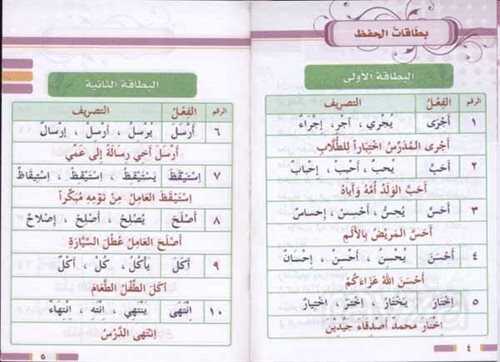 بطاقات الحفظ
البطاقة الأولى
الرقم الفِعْلُ التصريف
١ أَجْرَى يُجْرِي ، أَجْرِ، إِجْرَاءٌ
أَجْرَى المُدَرِّسُ اخْتِبَاراً لِلطُّلَابِ
٢ أَحَبَّ يُحِبُّ ، أَحْبِبْ ، إِحْبَابٌ
أَحَبَّ الوَلَدُ أُمَّهُ وَأَبَاهُ
٣ أَحَسَّ يُحِسُّ ، أَحْسِسْ ، إِحْسَاسٌ
أَحَسَّ المَرِيضُ بِالأَلَمِ
٤ أَحْسَنَ يُحْسِنُ ، أَحْسِنْ ، إِحْسَانٌ
أَحْسَنَ اللهُ عَزَاءَكُمْ
٥ اِخْتَارَ يَخْتَارُ ، اِخْتَرْ ، اِخْتِيَارٌ
اخْتَارَ محمد أصدقاء جيدين
٤
البطاقة الثانية
الرقم الفِعْلُ التصريف
٦ أَرْسَلَ يُرْسِلُ ، أَرْسِلْ ، إِرْسَالٌ
أَرْسَلَ أَخِي رِسَالَةً إِلَى عَمِّي
٧ اِسْتَيْقَظَ يَسْتَيْقِظُ ، اِسْتَيْقِظْ ، اِسْتِيقَاظٌ
اِسْتَيْقَظَ العَامِلُ مِنْ نَوْمِهِ مُبَكِّراً
٨ أَصْلَحَ يُصْلِحُ ، أَصْلِحْ ، إِصْلَاحٌ
أَصْلَحَ العَامِلُ عُطْلَ السَّيَّارَةِ
٩ أَكَلَ يَأْكُلُ ، كُلْ ، أَكْلٌ
أَكَلَ الطِّفْلُ الطَّعَامَ
١٠ اِنْتَهَى يَنْتَهِي ، اِنْتَهِ ، اِنْتِهَاءٌ
اِنْتَهَى الدَّرْسُ
٥